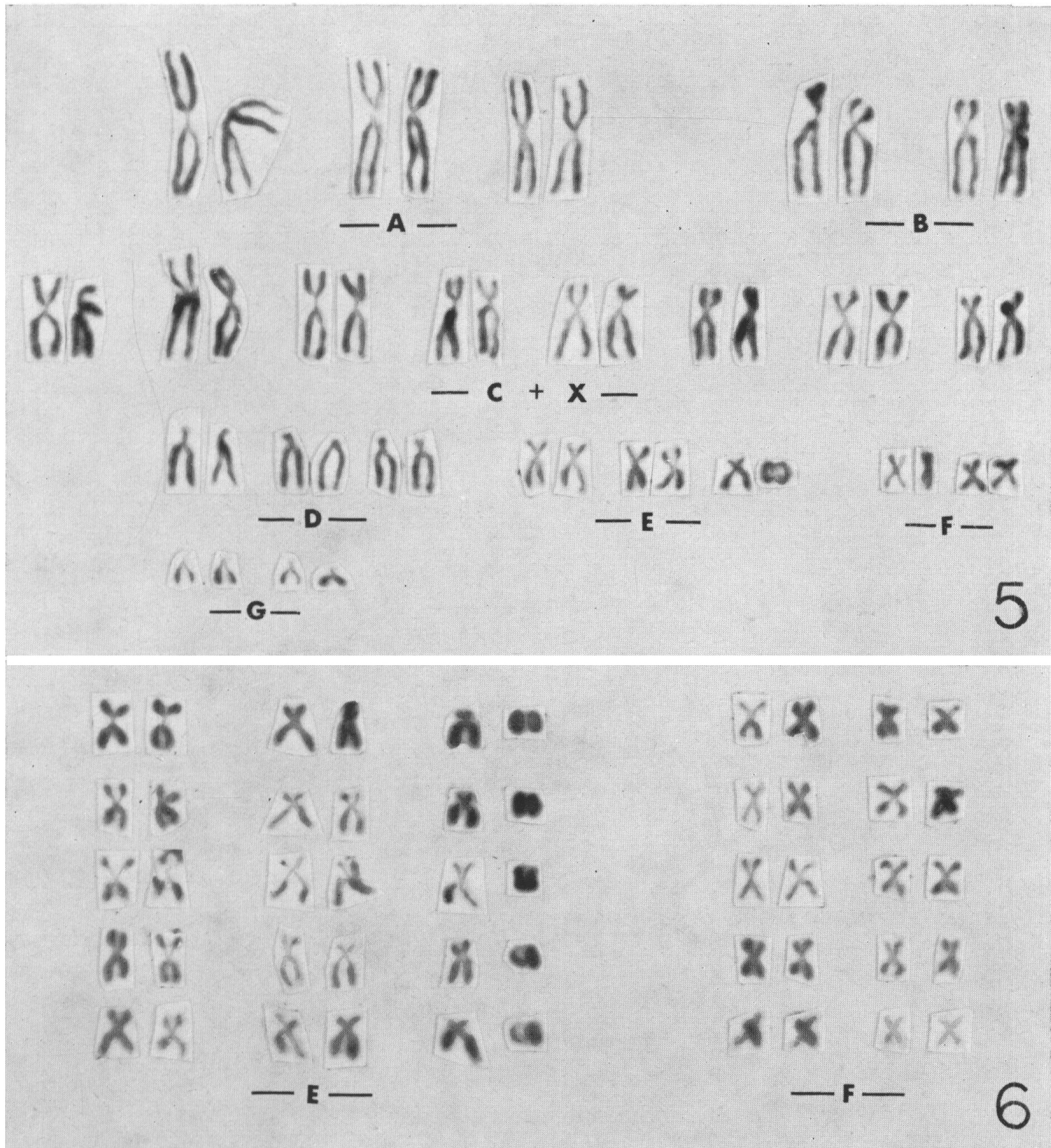 — A —
— B —
— C + X —
— D —
— E —
— F —
— G —
5
— E —
— F —
6